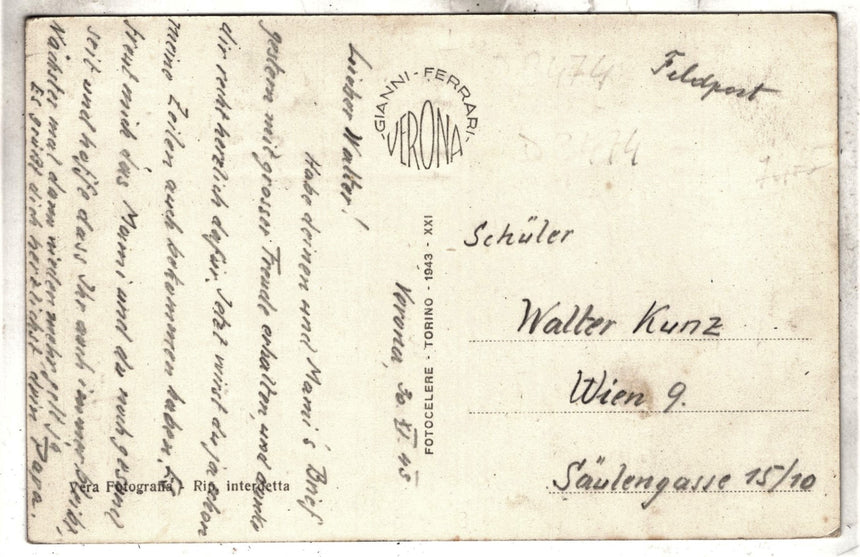 Feldpost
D 8474
GIANNI-FERRARI-
VERONA
Schüler
Walter Kunz
Wien 9.
Säulengasse 15/10
FOTOCELERE - TORINO - 1943 - XXI
Verona, 30 XI 45
Lieber Walter!
Habe deinen und Mami's Brief
gestern mit grosser Freude erhalten, und danke
dir recht herzlich dafür. Jetzt wirst du ja schon
meine Zeilen auch bekommen haben.
freut mich das Mami und du noch gesund
seit und hoffe dass Ihr auch immer bleibt.
Nächstes mal dann wieder mehr
Es grüßt dich herzlichst dein Papa.
Vera Fotografia - Rip. interdetta